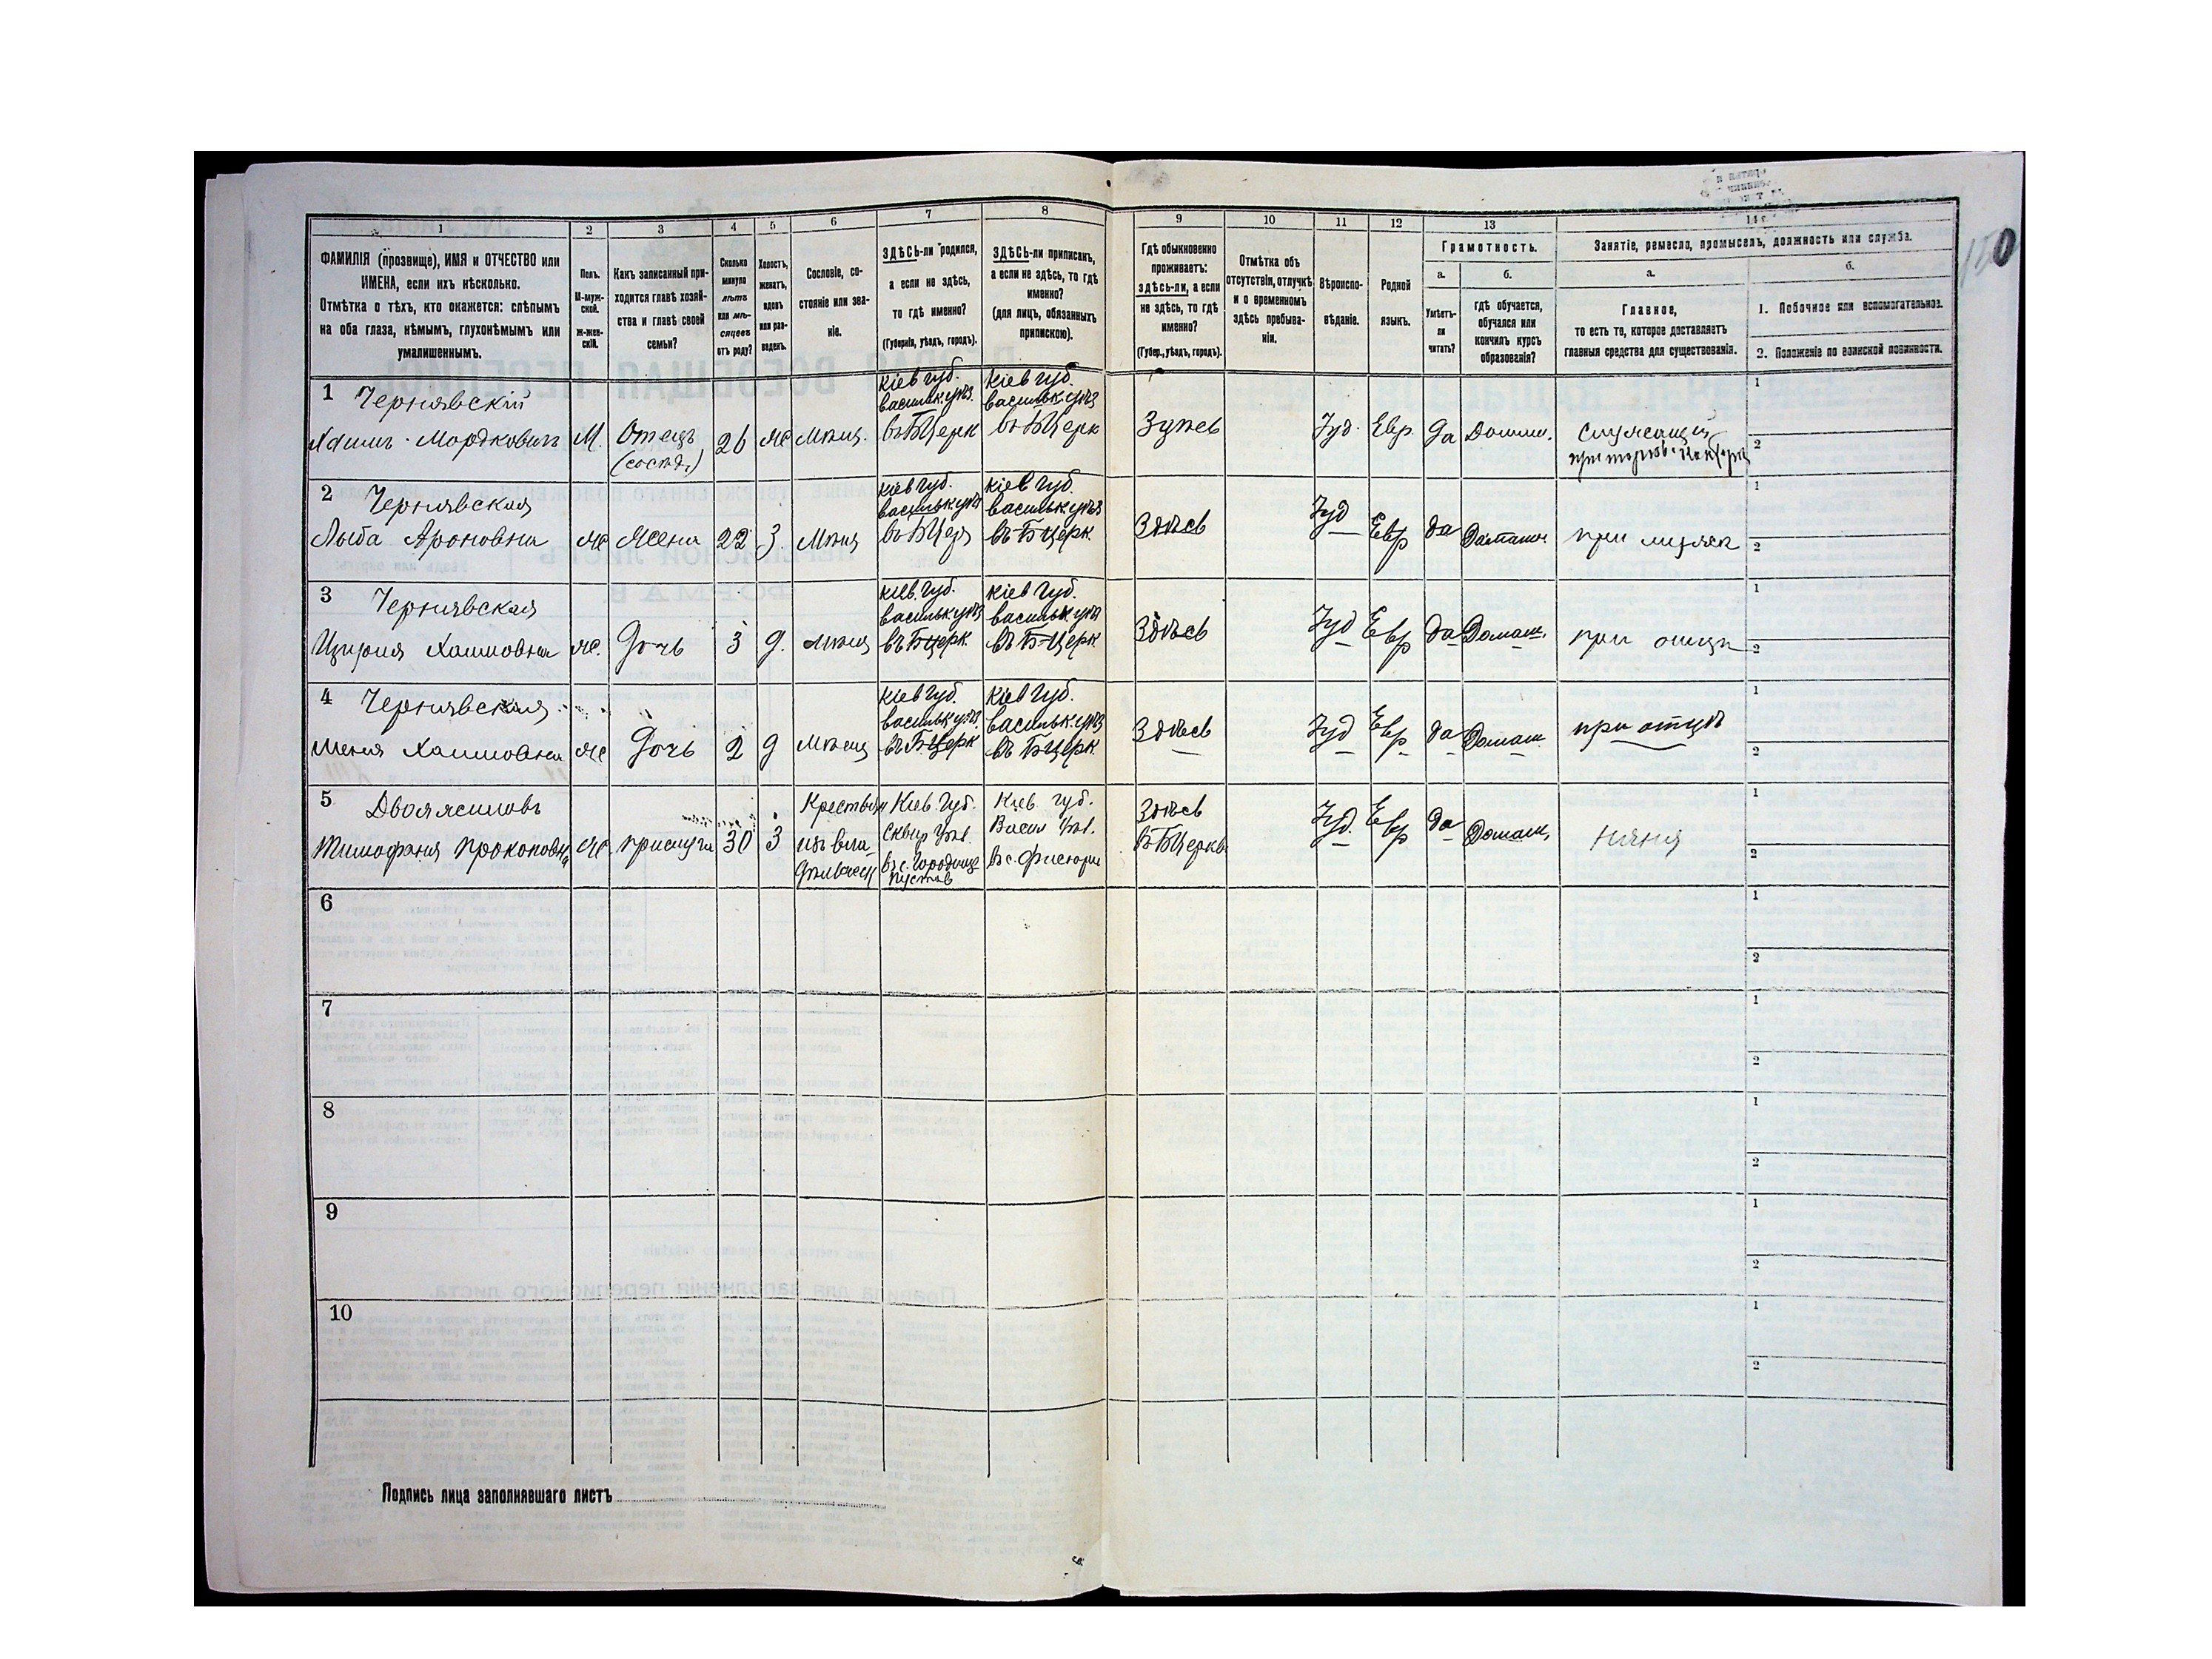 1 2 3 4 5 6 7 8 9 10 11 12 13 14
ФАМИЛІЯ (прозвище), ИМЯ и ОТЧЕСТВО или ИМЕНА, если ихъ нѣсколько.
Отмѣтка о тѣхъ, кто окажется: слѣпымъ на оба глаза, нѣмымъ, глухонѣмымъ или умалишеннымъ.
Полъ. М-мужской. Ж-женскій.
Какъ записанный приходится главѣ хозяйства и главѣ своей семьи?
Сколько минуло лѣтъ или мѣсяцевъ отъ роду?
Холостъ, женатъ, вдовъ или разведенъ.
Сословіе, состояніе или званіе.
ЗДѢСЬ-ли родился, а если не здѣсь, то гдѣ именно?
(Губернія, уѣздъ, городъ).
ЗДѢСЬ-ли приписанъ, а если не здѣсь, то гдѣ именно?
(для лицъ, обязанныхъ припискою).
Гдѣ обыкновенно проживаетъ: здѣсь-ли, а если не здѣсь, то гдѣ именно?
(Губер., уѣздъ, городъ).
Отмѣтка объ отсутствіи, отлучкѣ и о временномъ здѣсь пребываніи.
Вѣроисповѣданіе.
Родной языкъ.
Грамотность.
а. Умѣетъ-ли читать?
б. гдѣ обучается, обучался или кончилъ курсъ образованія?
Занятіе, ремесло, промыселъ, должность или служба.
а. Главное, то есть то, которое доставляетъ главныя средства для существованія.
б.
1. Побочное или вспомогательное.
2. Положеніе по воинской повинности.
150
1 Чернявскій
Хаимъ Мордковичъ М. Отецъ 26 же Мѣщ.
Кіев губ. Васильк. уѣз. въ БЦерк
Кіев губ. Васильк уѣз въ БЦерк
Іуд. Евр. да Домаш. Служащій
1
2
2 Чернявская
Лыба Ароновна же Жена 22 З. Мѣщ
Кіев губ. Васильк уѣз въ БЦер
Кіев губ. Васильк уѣз въ БЦерк.
Здѣсь Іуд Евр да Домашн при мужѣ
1
2
3 Чернявская
Хаимовна же. Дочь 3 д. Мѣщ
Кіев. губ. Васильк уѣз въ БЦерк.
Кіев губ. Васильк уѣз въ БЦерк.
Здѣсь Іуд Евр да Домаш. при отцѣ
1
2
4 Чернявская
Шеня Хаимовна же Дочь 2 д Мѣщ
Кіев губ. Васильк уѣз въ БЦерк
Кіев губ. Васильк. уѣз въ БЦерк.
Здѣсь Іуд Евр да Домаш при отцѣ
1
2
5
Прокоповна же. прислуга 30 З
Крестьян изъ
Кіев. губ. Сквир уѣз. въ с. Городище
Кіев губ. Васил уѣз. въ с.
Здѣсь БЦерквь Іуд. Евр да Домаш, няня
1
2
6
1
2
7
1
2
8
1
2
9
1
2
10
1
2
Подпись лица заполнявшаго листъ